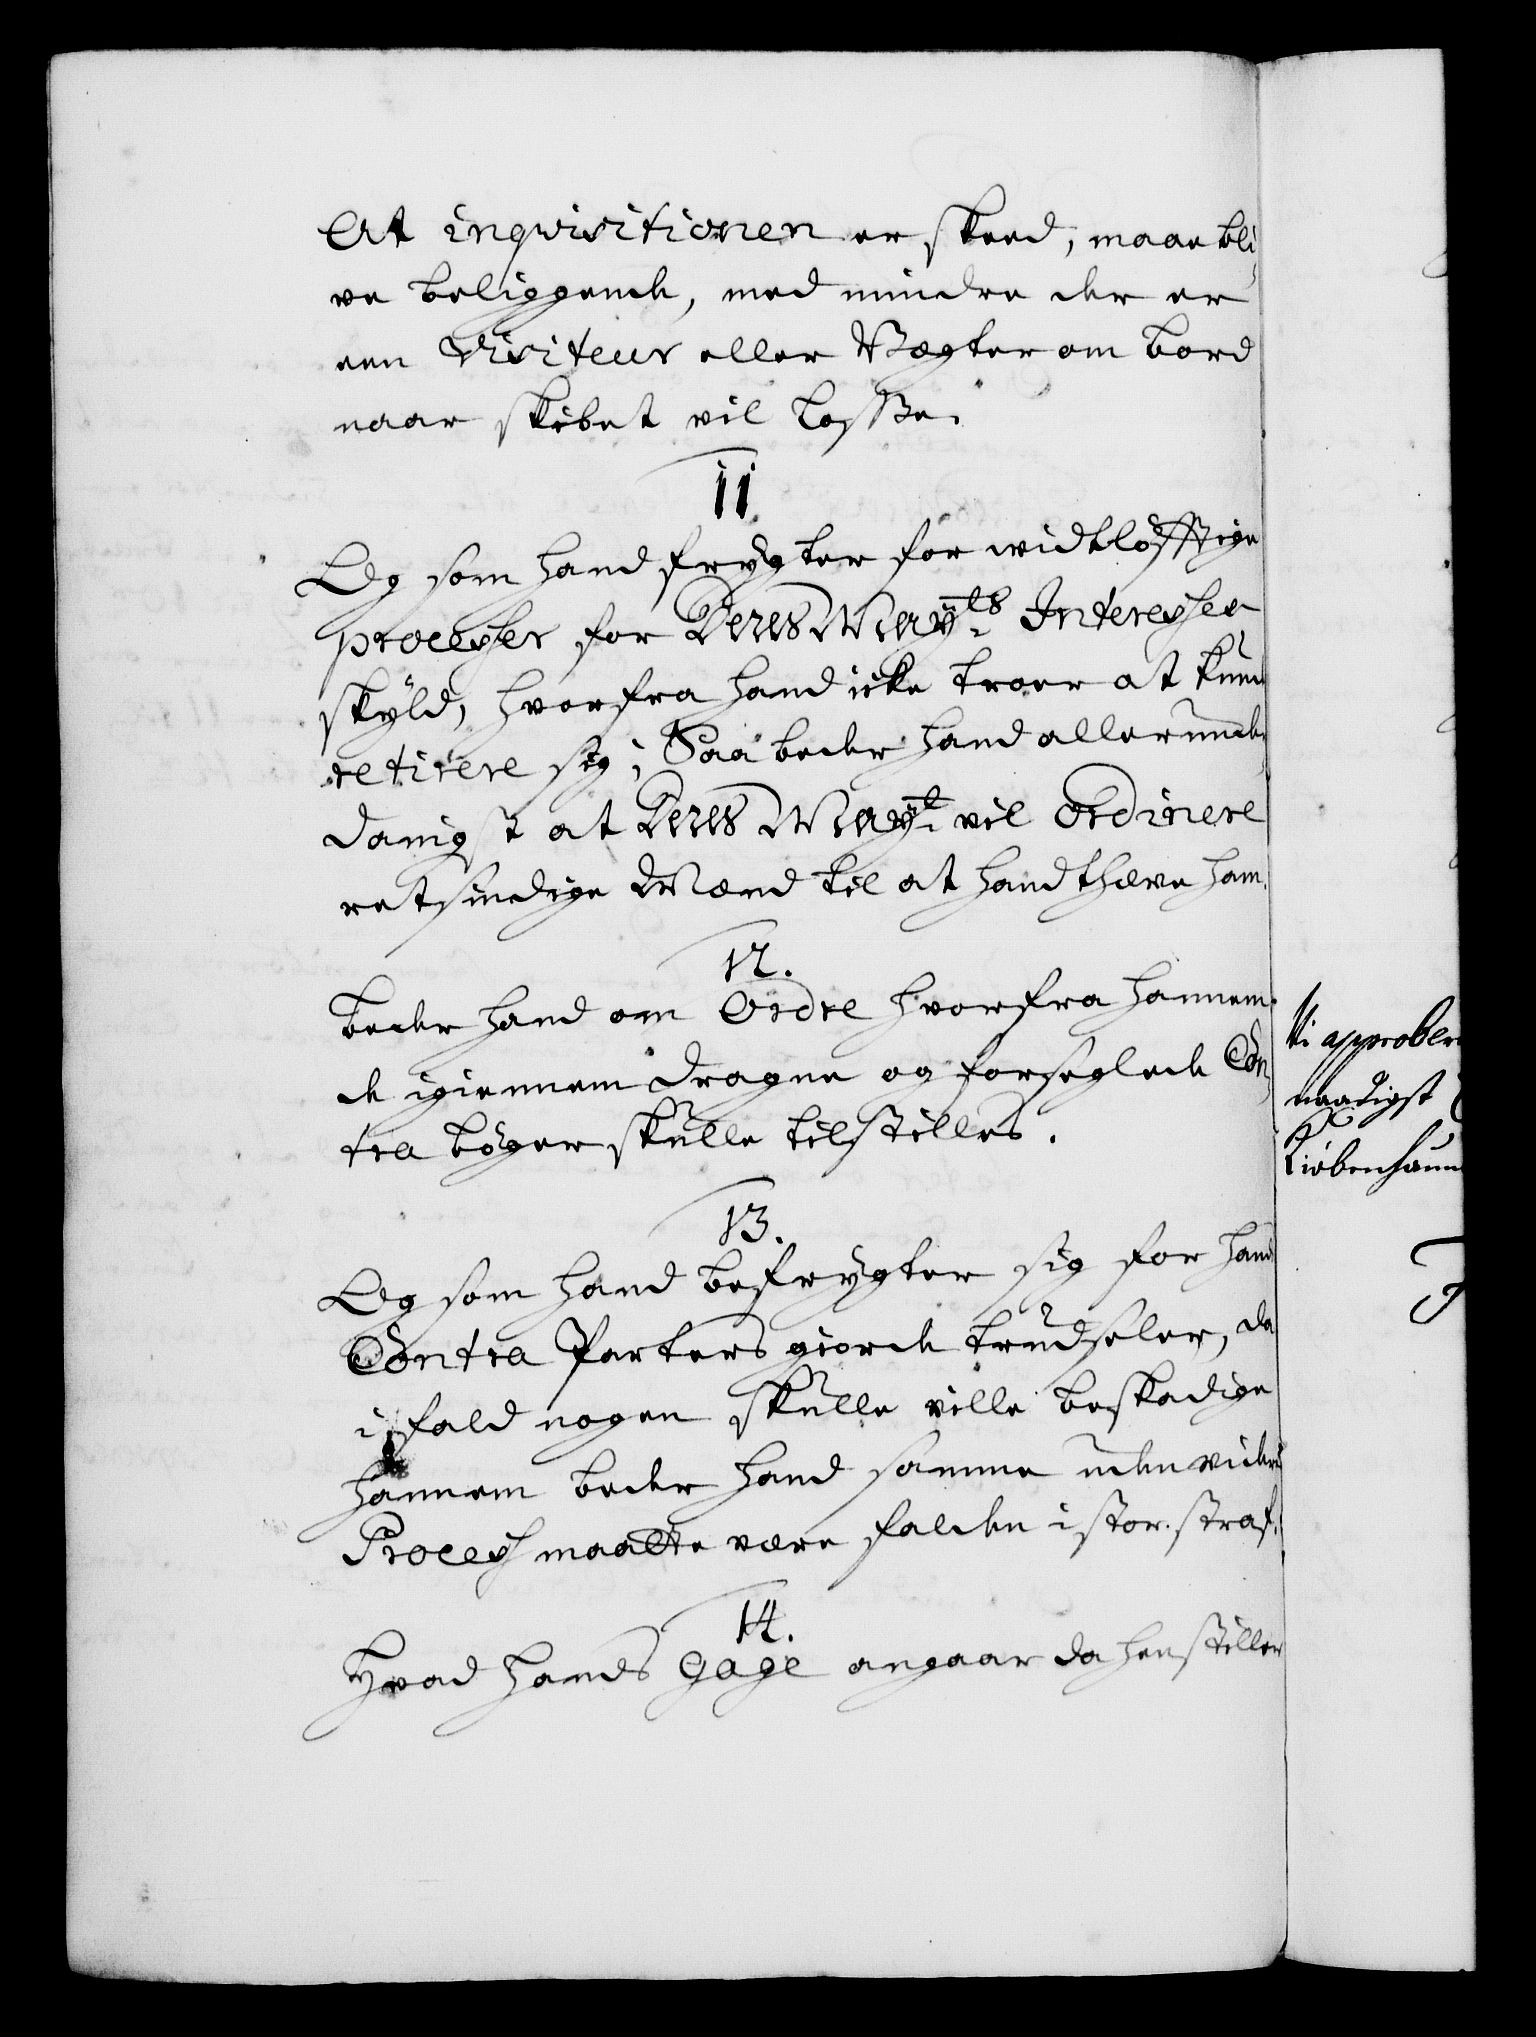 At inqvisitionen er skeed, maae bli
ve beliggende, med mindre der er
een Visiteur eller Vægter om bord
naar skibet vil losse.
11
Og som hand frygter for widtløfftige
processer for Deres Mayts Interesser
skyld, hvorfra hand icke troer at kund
retirere sig; Saa beder hand allerunde
danigst at Deres Mayt vil Ordinere
retsindige Mænd til at handthæve ham.
12.
Beder hand om Ordre hvorfra hannem
de igiennem dragne og forseglede Con
tra bøger skulle tilstilles.
13.
Og som hand befrygter sig for hand
Contra Parters giorde trudseler, da
ifald nogen skulle ville beskadige
hannem beder hand samme uden videre
Process maatte være falden i stor straf.
14.
Hvad hands Gage angaar da henstiller
Vi approber
naadigst
Kiøbenhaun